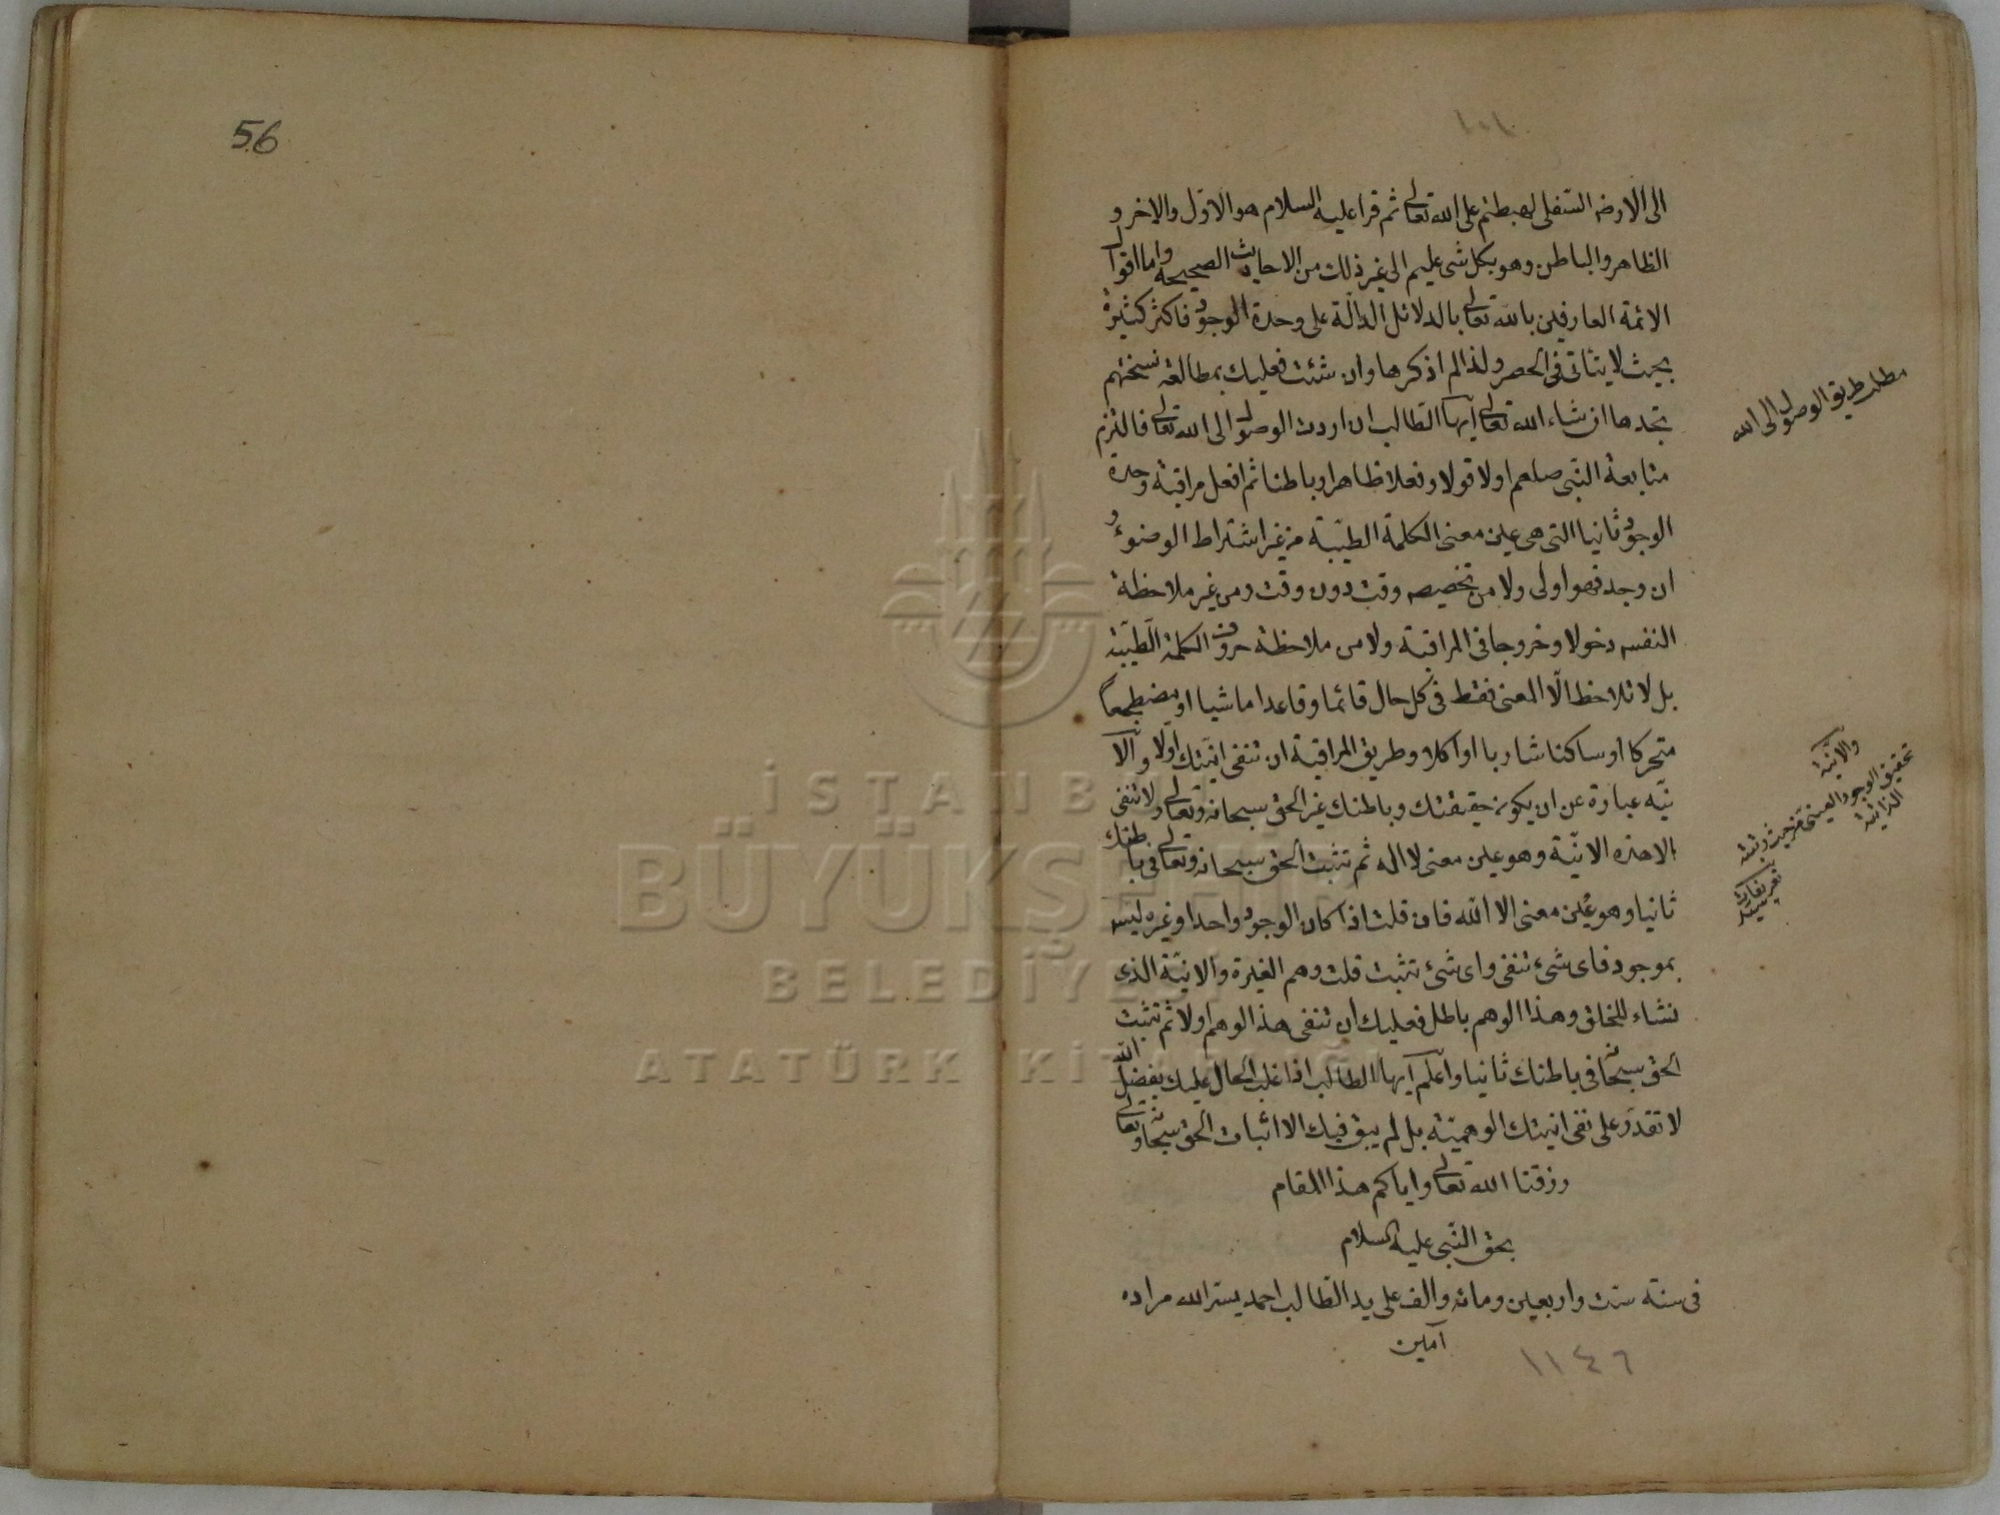 ١٠١
الى الارض السفلى لهبطتم على الله تعالى ثم قرا عليه السلام هو الاوّل والاخر و
الظاهر والباطن وهو بكل شى عليم الى غير ذلك من الاحاديث الصحيحة واما اقوال
الائمة العارفين بالله تعالى بالدلائل الدالّة على وحدة الوجود فاكثر كثيرة
بحيث لا يتأتى فى الحصر ولذا لم اذكرها وان شئت فعليك بمطالعة نسختهم
تجدها ان شاء الله تعالى ايها الطالب ان اردت الوصول الى الله تعالى فالتزم
متابعة النبى صلعم اولا قولا وفعلا ظاهرا وباطنا ثم افعل مراقبة وحدة
الوجود ثانيا التى هى عين معنى الكلمة الطيّبة من غير اشتراط الوضوء و
ان وجد فهو اولى ولا من تخصيص وقت دون وقت ومن غير ملاحظة
النفس دخولا وخروجا فى المراقبة ولا من ملاحظة حروف الكلمة الطيّبة
بل لا تلاحظ الّا المعنى فقط فى كل حال قائما وقاعدا ماشيا او مضطجعاً
متحركا او ساكنا شاربا او اكلا وطريق المراقبة ان تنفى انيّتك اولا والا
نيّه عبارة عن ان يكون حقيقتك وباطنك غير الحق سبحانه وتعالى ولا تنفى
الا هذه الانيّة وهو عين معنى لا اله ثم تثبت الحق سبحانه وتعالى فى باطنك
ثانيا وهو عين معنى الا الله فان قلت اذا كان الوجود واحدا وغيره ليس
بموجود فاى شىء تنفى واى شىء تثبت قلت وهم الغيرة والانيّة الذى
نشاء للخلق وهذا الوهم باطل فعليك ان تنفى هذ الوهم اولا ثم تثبت
الحق سبحانه فى باطنك ثانيا واعلم ايها الطالب اذا غلب الحال عليك بفضل الله
لا تقدر على نفى انيتك الوهميّة بل لم يبق فيك الا اثبات الحق سبحانه وتعالى
رزقنا الله تعالى واياكم هذا المقام
بحق النّبى عليه السلام
فى سنة ستت واربعين ومائه والف على يد الطالب احمد يسّر الله مراده
آمين
١١٤٦
مطلب طريق الوصول الى الله
والانيّة
تحقيق الوجود العينى من حيث
الذاتية
56
İSTANB
BÜYÜKŞEH
BELEDİYESİ
ATATÜRK Kİ